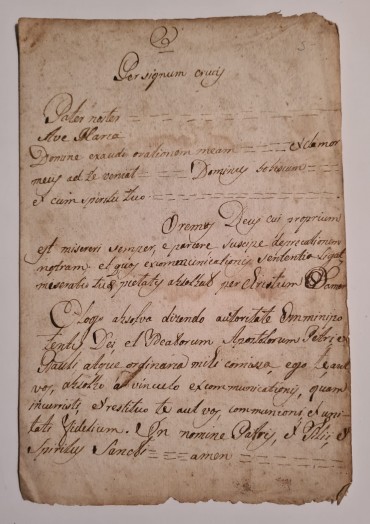 Per signum crucis
Pater noster
Ave Maria
Domine exaudi orationem meam et clamor
meus ad te veniat Dominus vobiscum
et cum spiritu tuo
Oremus Deus cui proprium
est misereri semper, et parcere suscipe deprecationem
nostram, et quos excomunicationis sententia ligat
miseratio tuæ pietatis absolvat per Cristum
absolva dizendo autoritate Omnipo
tentis Dei et Beatorum Apostolorum Petri, et
Pauli atque ordinaria mihi comissa, ego te aut
vos, absolvo a vinculo excommunicationis, quam
incurristi, et restituo te aut vos communioni et uni
tati Fidelium. In nomine Patris, et Filii, et
Spiritus Sancti amen